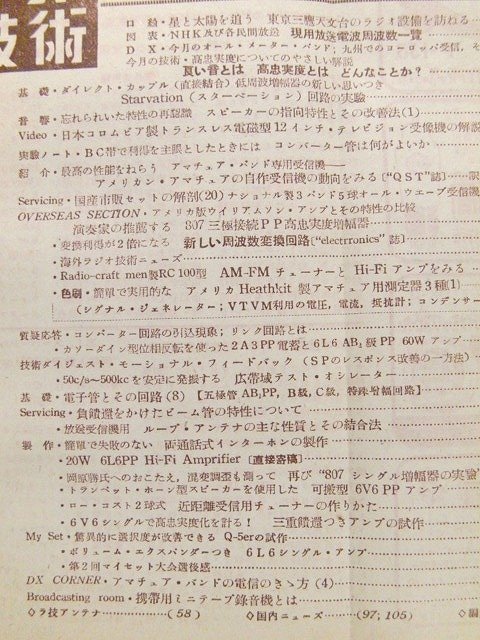 技術
口絵・星と太陽を追う 東京三鷹天文台のラジオ設備を訪ねる
図表・NHK及各民間放送 現用放送電波周波数一覧
DX・今月のオール・メーター・バンド;九州でのヨーロッパ受信,そ
今月の技術・高忠実度についてのやさしい解説
良い音とは 高忠実度とは どんなことか?
基礎・ダイレクト・カップル(直接結合)低周波増幅器の新しい思いつき
Starvation(スターベーション)回路の実験
音響・忘れられいた特性の再認識 スピーカーの指向特性とその改善法(1)
Video・日本コロムビア製トランスレス電磁型12インチ・テレビジョン受像機の解説
実験ノート・BC帯で利得を主眼としたときには コンバーター管は何がよいか
紹介・最高の性能をねらう アマチュア・バンド専用受信機——
アメリカン・アマチュアの自作受信機の動向をみる〔“QST”誌〕
Servicing・国産市販セットの解剖(20)ナショナル製3バンド5球オール・ウェーブ受信機
OVERSEAS SECTION・アメリカ版ウイリアムソン・アンプとその特性の比較
演奏家の推薦する 807三極接続PP高忠実度増幅器
・変換利得が2倍になる 新しい周波数変換回路〔“electrronics”誌〕
・海外ラジオ技術ニュース
・Radio-craft men製RC100型 AM-FMチューナーと Hi-Fiアンプをみる
・色刷・簡単で実用的な アメリカHeathkit製アマチュア用測定器3種(1)
(シグナル・ジェネレーター;VTVM利用の電圧,電流,抵抗計;コンデンサー
質疑応答・コンバーター回路の引込現象;リンク回路とは
・カソーダイン型位相反転を使った2A3PP電蓄と6L6 AB₁級PP 60Wアンプ
技術ダイジェスト・モーショナル・フィードバック(SPのレスポンス改善の一方法)
・50c/s〜500kcを安定に発振する 広帯域テスト・オシレーター
基礎・電子管とその回路(8)【五極管AB₁PP,B級,C級,特殊増幅回路】
Servicing・負饋還をかけたビーム管の特性について
・放送受信機用 ループ・アンテナの主な性質とその結合法
製作・簡単で失敗のない 両通話式インターホンの製作
・20W 6L6PP Hi-Fi Amprifier [直接寄稿]
・岡原勝氏へのおこたえ,混変調歪も測って 再び“807シングル増幅器の実験”
・トランペット・ホーン型スピーカーを使用した 可搬型6V6PPアンプ
・ロー・コスト2球式 近距離受信用チューナーの作りかた
・6V6シングルで高忠実度化を計る! 三重饋還つきアンプの試作
My Set・驚異的に選択度が改善できる Q-5erの試作
・ボリューム・エクスパンダーつき 6L6シングル・アンプ
・第2回マイセット大会選後感
DX CORNER・アマチュア・バンドの電信のきゝ方(4)
Broadcasting room・携帯用ミニテープ録音機とは
◇ラ技アンテナ(58) ◇国内ニューズ(97;105)